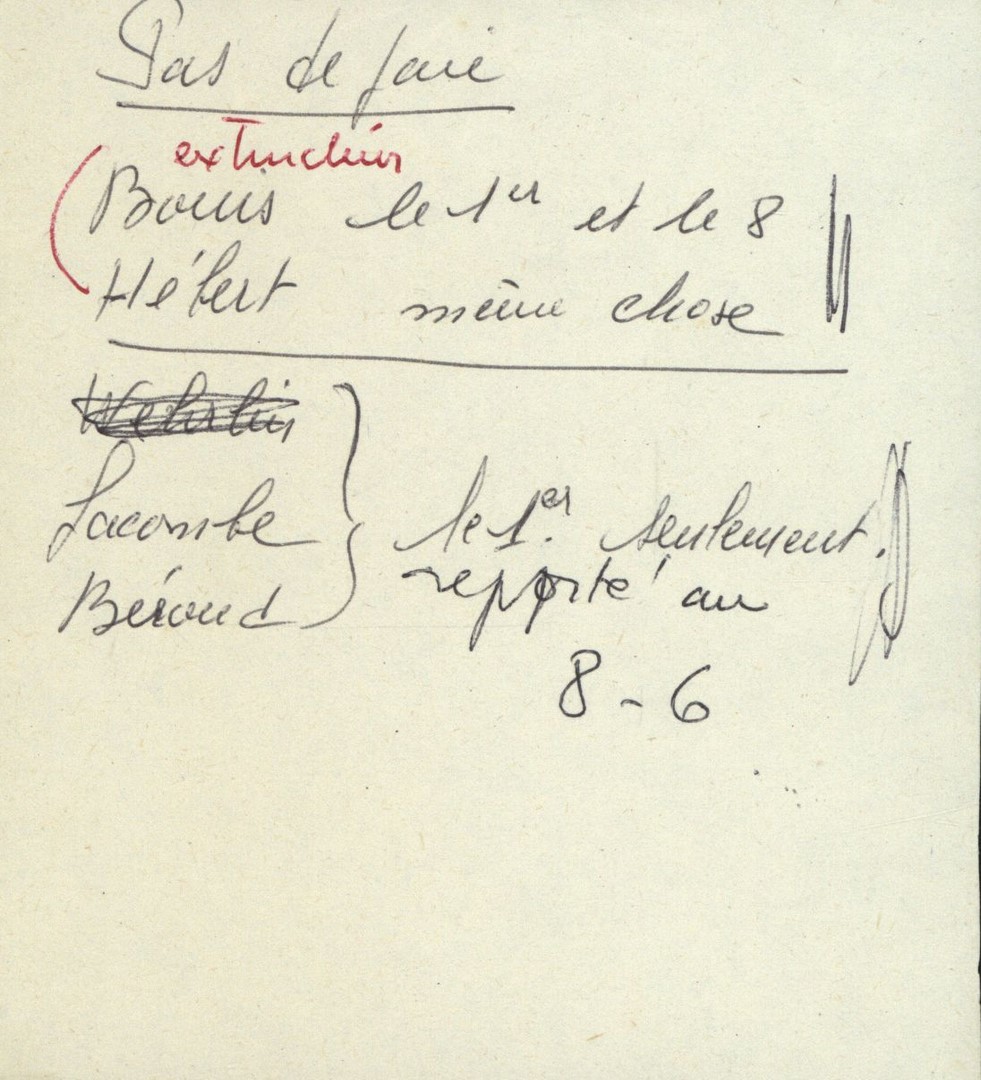 Pas de
extincteur
le 1er et le 8
Hébert même chose
Wehrlin
Lacombe
le 1er. seulement.
Béroud
reporté au
8-6